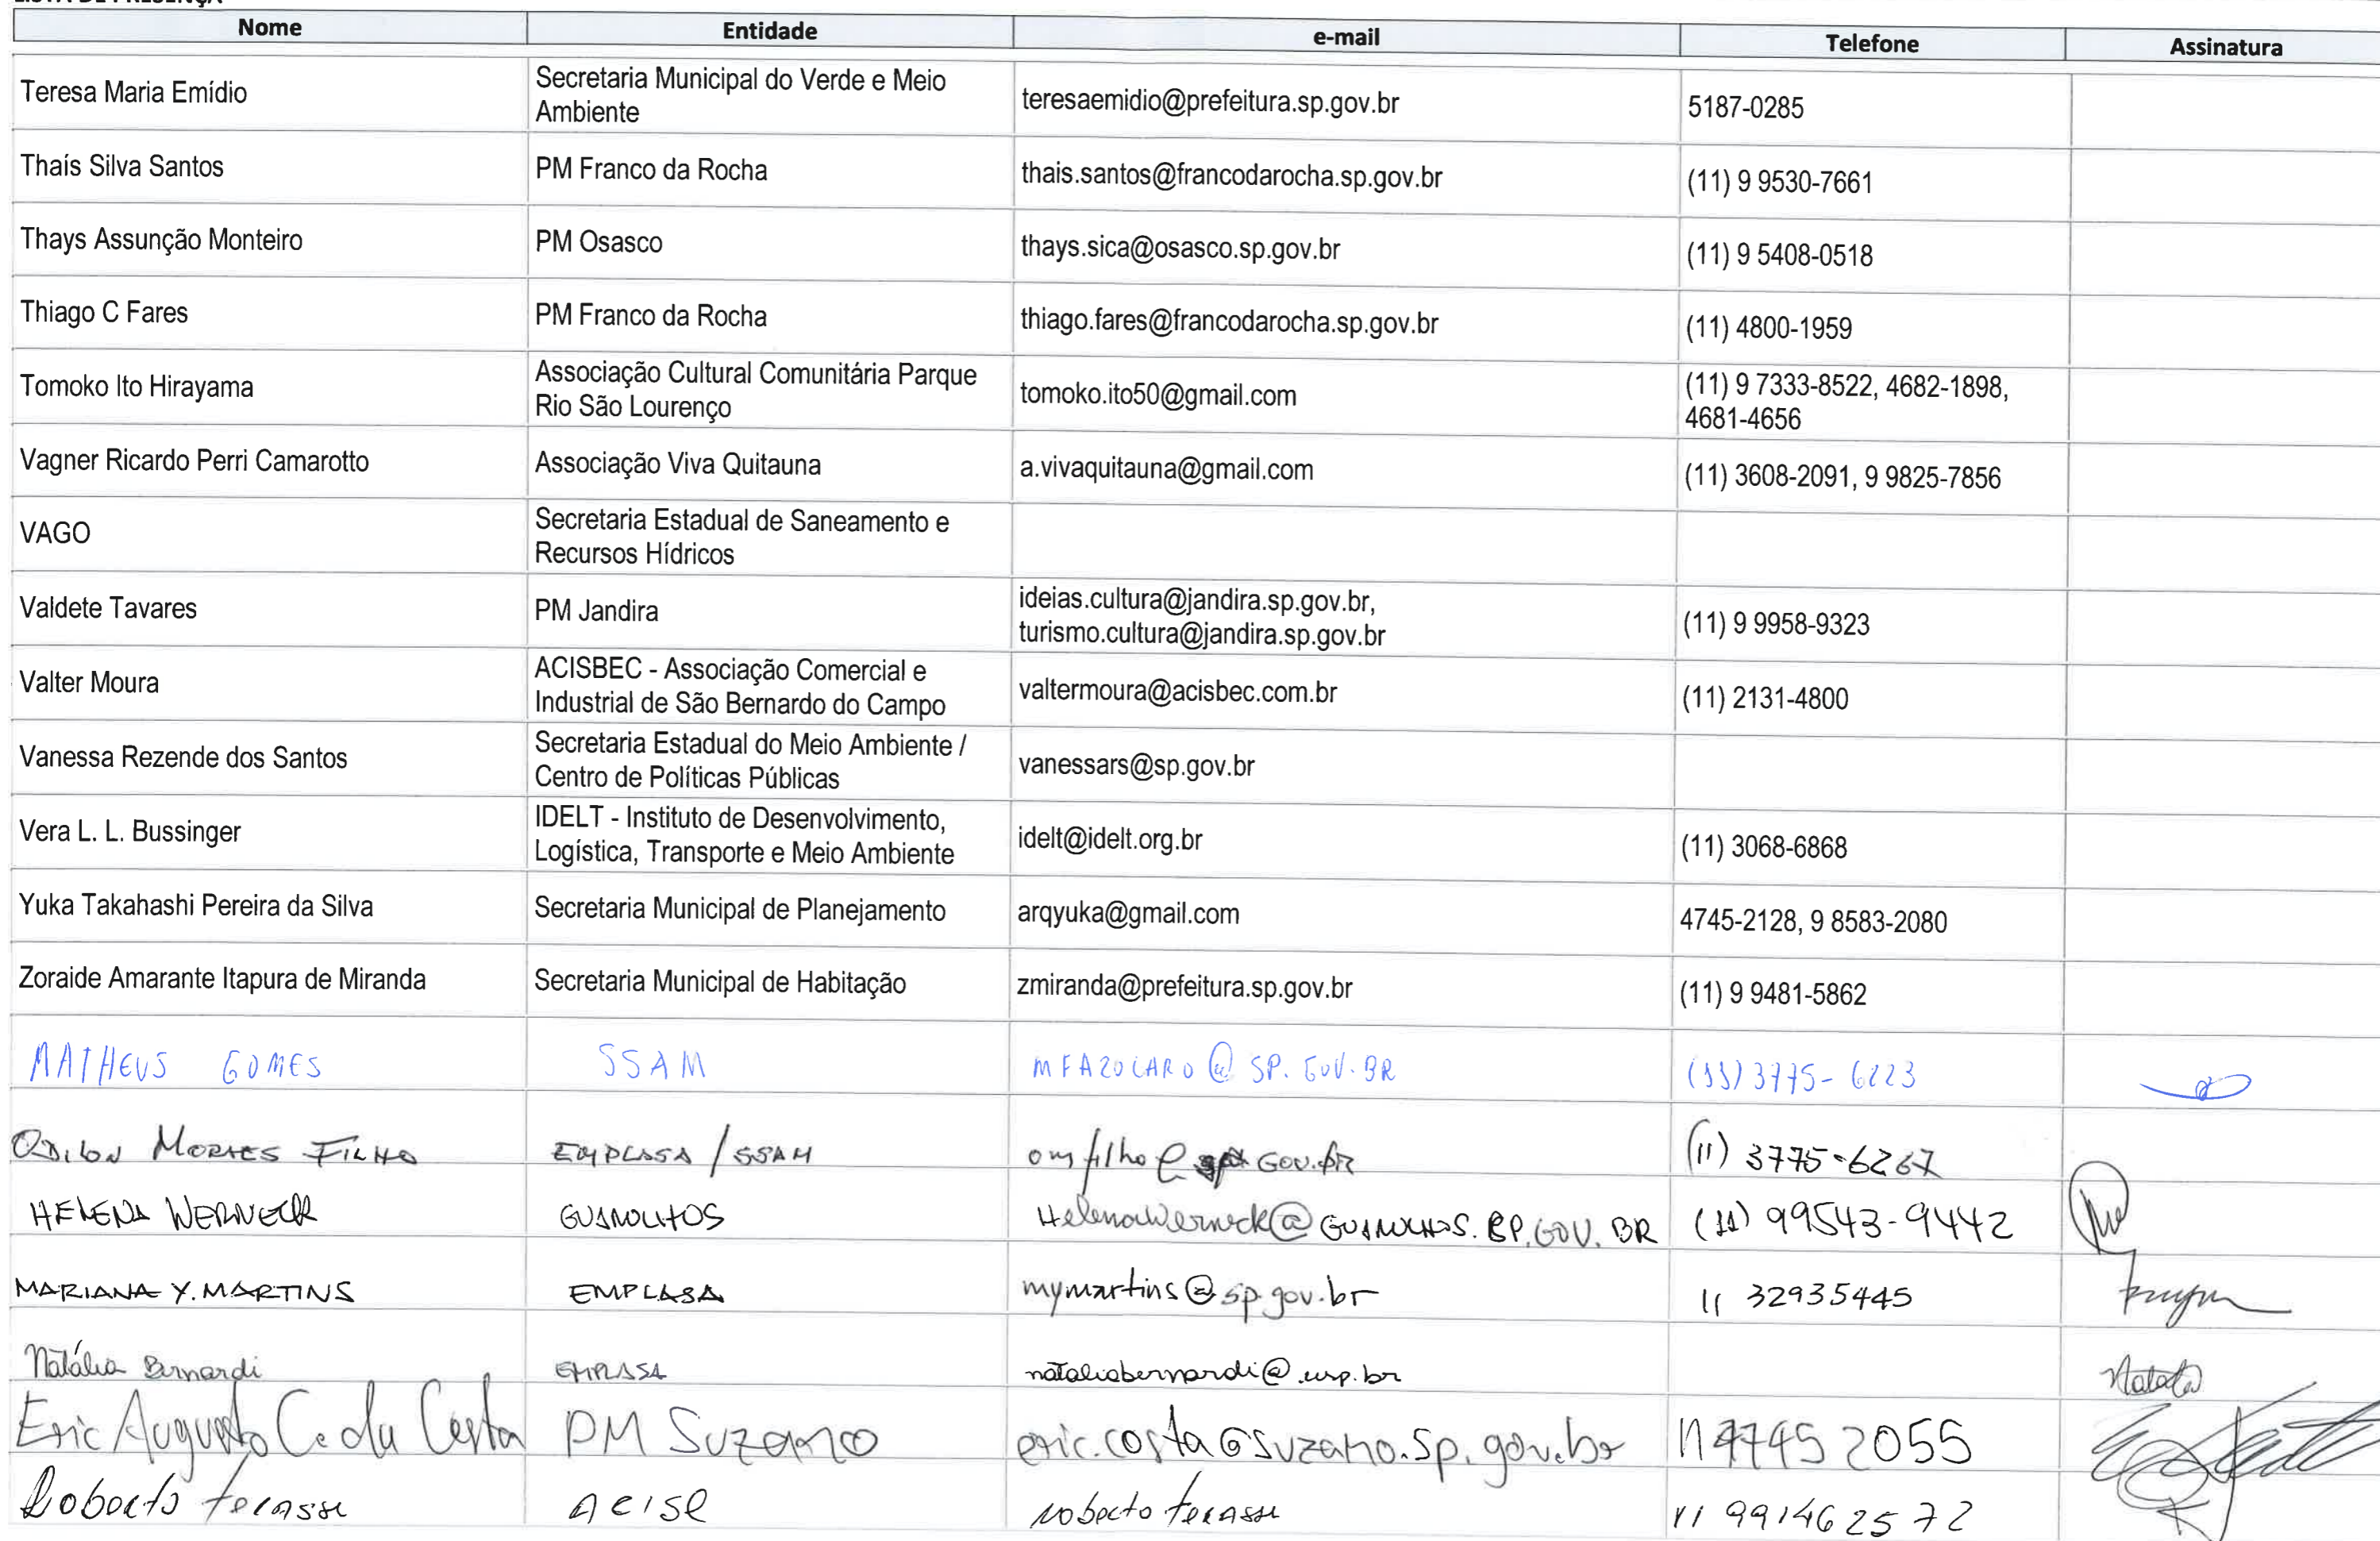 LISTA DE PRESENÇA
Nome Entidade e-mail Telefone Assinatura
Teresa Maria Emídio Secretaria Municipal do Verde e Meio Ambiente teresaemidio@prefeitura.sp.gov.br 5187-0285
Thaís Silva Santos PM Franco da Rocha thais.santos@francodarocha.sp.gov.br (11) 9 9530-7661
Thays Assunção Monteiro PM Osasco thays.sica@osasco.sp.gov.br (11) 9 5408-0518
Thiago C Fares PM Franco da Rocha thiago.fares@francodarocha.sp.gov.br (11) 4800-1959
Tomoko Ito Hirayama Associação Cultural Comunitária Parque Rio São Lourenço tomoko.ito50@gmail.com (11) 9 7333-8522, 4682-1898, 4681-4656
Vagner Ricardo Perri Camarotto Associação Viva Quitauna a.vivaquitauna@gmail.com (11) 3608-2091, 9 9825-7856
VAGO Secretaria Estadual de Saneamento e Recursos Hídricos
Valdete Tavares PM Jandira ideias.cultura@jandira.sp.gov.br, turismo.cultura@jandira.sp.gov.br (11) 9 9958-9323
Valter Moura ACISBEC - Associação Comercial e Industrial de São Bernardo do Campo valtermoura@acisbec.com.br (11) 2131-4800
Vanessa Rezende dos Santos Secretaria Estadual do Meio Ambiente / Centro de Políticas Públicas vanessars@sp.gov.br
Vera L. L. Bussinger IDELT - Instituto de Desenvolvimento, Logística, Transporte e Meio Ambiente idelt@idelt.org.br (11) 3068-6868
Yuka Takahashi Pereira da Silva Secretaria Municipal de Planejamento arqyuka@gmail.com 4745-2128, 9 8583-2080
Zoraide Amarante Itapura de Miranda Secretaria Municipal de Habitação zmiranda@prefeitura.sp.gov.br (11) 9 9481-5862
MATHEUS GOMES SSAM MFAZOLARO@SP.GOV.BR (11) 3775-6223
ODILON MORAES FILHO EMPLASA / SSAM omfilho@sp.GOV.BR (11) 3775-6267
HELENA WERNECK GUARULHOS HelenaWerneck@GUARULHOS.SP.GOV.BR (11) 99543-9442
MARIANA Y. MARTINS EMPLASA mymartins@sp.gov.br 11 32935445
Natália Bernardi EMPLASA nataliabernardi@usp.br Natália
Eric Augusto C. da Costa PM Suzano eric.costa@suzano.sp.gov.br 11 4745 2055
Roberto ACISE roberto 11 991462572